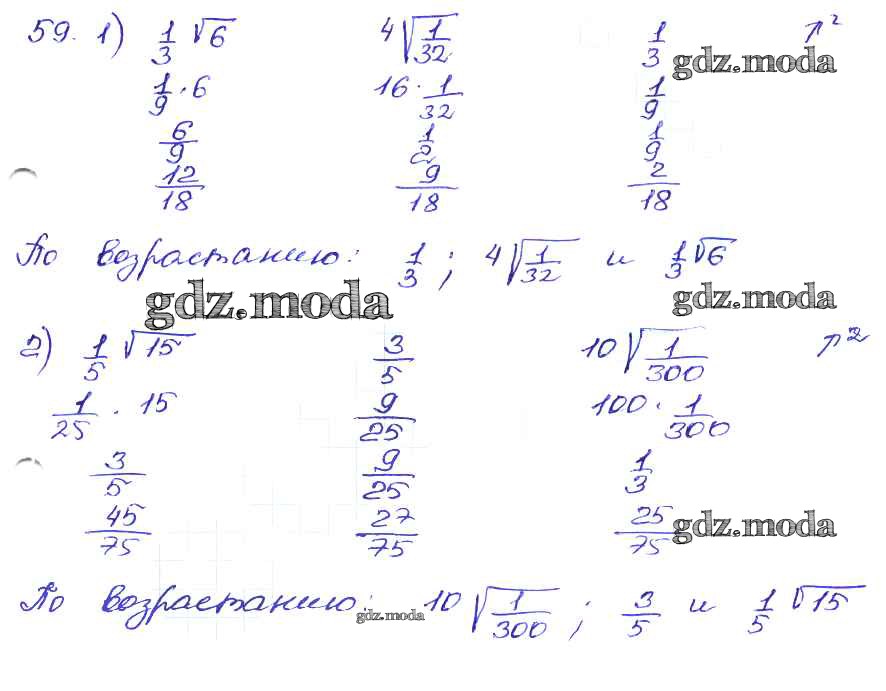 59. 1) 1/3 √6 4√1/32 1/3 ↑²
gdz.moda
1/9 · 6 16 · 1/32 1/9
6/9 1/2 1/9
12/18 9/18 2/18
По возрастанию: 1/3 ; 4√1/32 и 1/3 √6
gdz.moda gdz.moda
2) 1/5 √15 3/5 10√1/300 ↑²
1/25 · 15 9/25 100 · 1/300
3/5 9/25 1/3
45/75 27/75 25/75
gdz.moda
По возрастанию: 10√1/300 ; 3/5 и 1/5 √15
gdz.moda